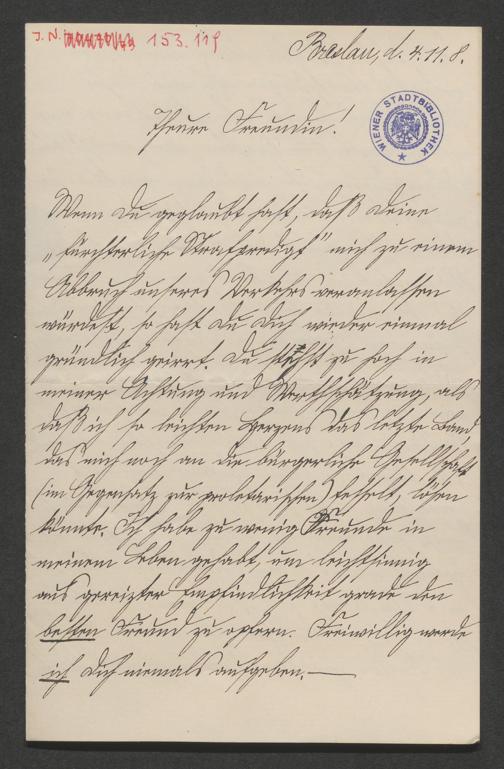 J. N. 153.119
Breslau, d. 4.11.8.
WIENER STADTBIBLIOTHEK
Theure Freundin!
Wenn Du geglaubt hast, daß Deine
„fürchterliche Strafpredigt" mich zu einem
Abbruch unseres Verkehrs veranlassen
würdest, so hast Du Dich wieder einmal
gründlich geirrt. Du stehst zu hoch in
meiner Achtung und Werthschätzung, als
daß ich so leichten Herzens das letzte Band,
das mich noch an die bürgerliche Gesellschaft
(im Gegensatz zur proletarischen) fesselt, lösen
könnte. Ich habe zu wenig Freunde in
meinem Leben gehabt, um leichtsinnig
aus gereizter Empfindlichkeit grade den
besten Freund zu opfern. Freiwillig werde
ich Dich niemals aufgeben. —